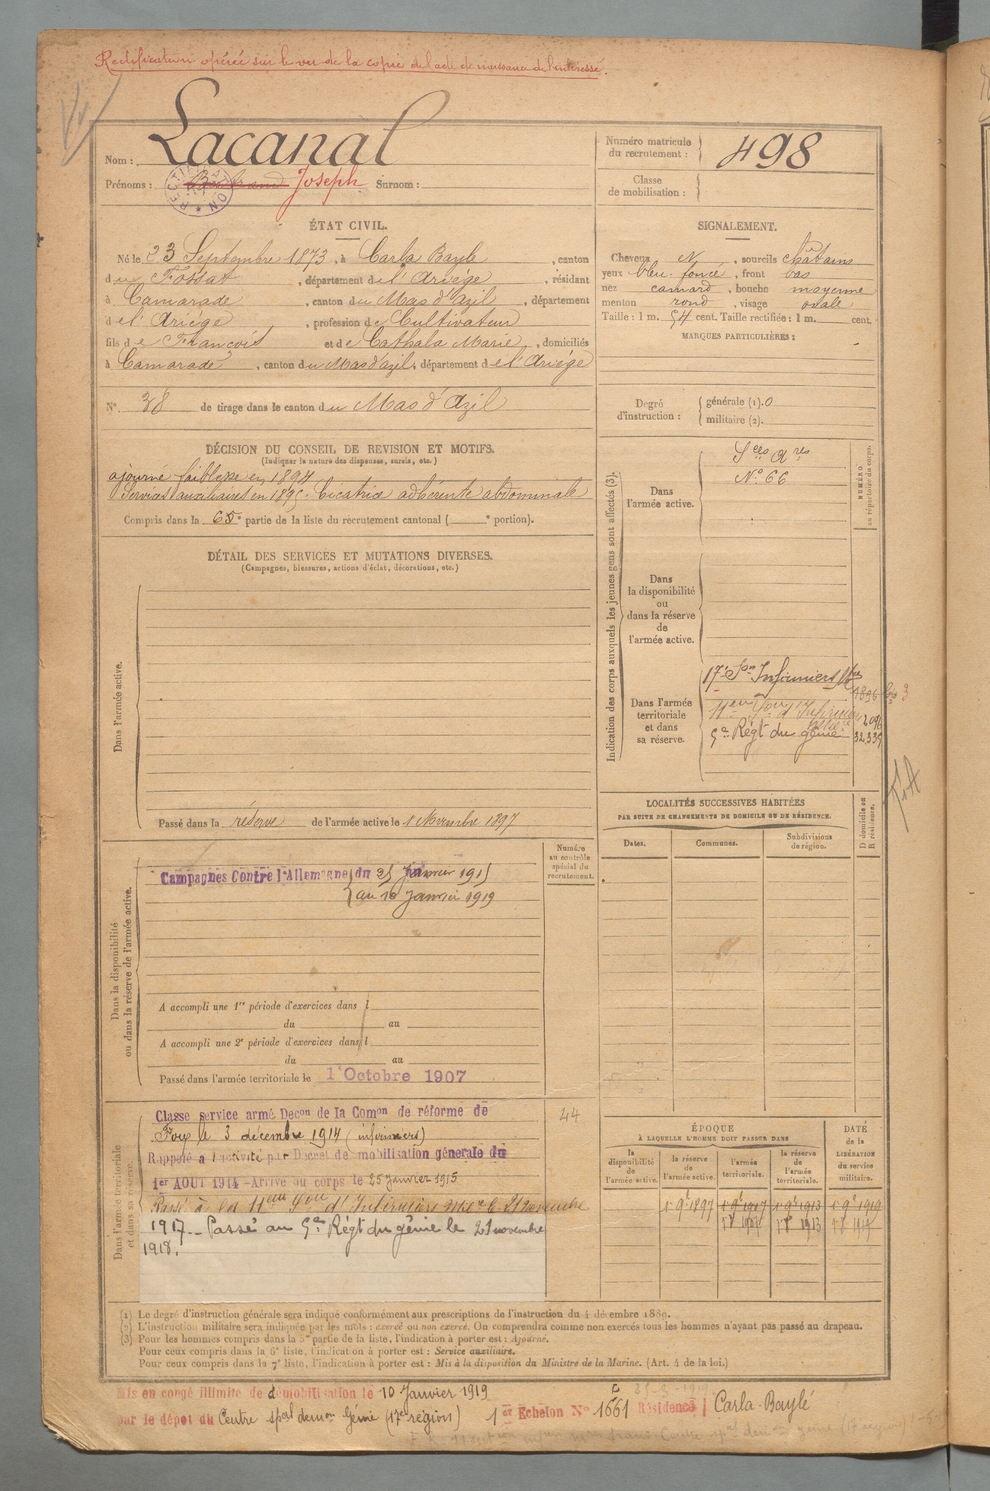 Rectification opérée sur le vu de la copie de l'acte de naissance de l'intéressé.
Nom : Lacanal
Prénoms : Joseph Surnom :
Numéro matricule du recrutement : 498
Classe de mobilisation :
ÉTAT CIVIL.
Né le 23 Septembre 1873, à Carla Bayle, canton
du Fossat, département de l'Ariège, résidant
à Camarade, canton du Mas d'Azil, département
de l'Ariège, profession de Cultivateur
fils de François et de Cathala Marie, domiciliés
à Camarade, canton du Mas d'azil, département de l'Ariège
N° 38 de tirage dans le canton du Mas d'Azil
SIGNALEMENT.
Cheveux N, sourcils châtains
yeux bleu foncé, front bas
nez camard, bouche moyenne
menton rond, visage ovale
Taille : 1 m. 54 cent. Taille rectifiée : 1 m. cent.
MARQUES PARTICULIÈRES :
Degré d'instruction : générale (1). 0
militaire (2).
DÉCISION DU CONSEIL DE REVISION ET MOTIFS.
(Indiquer la nature des dispenses, sursis, etc.)
ajourné faiblesse en 1894
Services auxiliaires en 1895. Cicatrice adhérente abdominale
Compris dans la 6e partie de la liste du recrutement cantonal ( e portion).
DÉTAIL DES SERVICES ET MUTATIONS DIVERSES.
(Campagnes, blessures, actions d'éclat, décorations, etc.)
Dans l'armée active.
Passé dans la réserve de l'armée active le 1 Novembre 1897
Indication des corps auxquels les jeunes gens sont affectés (3).
NUMÉRO au répertoire du corps.
Dans l'armée active.
Sces Ares
N° 66
Dans la disponibilité ou dans la réserve de l'armée active.
Dans l'armée territoriale et dans sa réserve.
17e Son Infirmiers Mres
5e Régt du génie
LOCALITÉS SUCCESSIVES HABITÉES
PAR SUITE DE CHANGEMENTS DE DOMICILE OU DE RÉSIDENCE.
Dates. Communes. Subdivisions de région. D domicile ou R résidence.
Dans la disponibilité ou dans la réserve de l'armée active.
Numéro au contrôle spécial du recrutement.
Campagnes Contre l'Allemagne du 25 Janvier 1915
au 10 Janvier 1919
A accompli une 1re période d'exercices dans l
du au
A accompli une 2e période d'exercices dans l
du au
Passé dans l'armée territoriale le 1er Octobre 1907
Dans l'armée territoriale et dans sa réserve.
44
Classé service armé Décon de la Comon de réforme de
Foix le 3 décembre 1914 (infirmiers)
Rappelé à l'activité par Décret de mobilisation générale du
1er AOUT 1914 - Arrivé au corps le 25 janvier 1915
Passé à la 11eme Son d'Infirmiers Mres le 21 novembre
1917. Passé au 5e Régt du génie le 21 novembre
1918.
ÉPOQUE
À LAQUELLE L'HOMME DOIT PASSER DANS
la disponibilité de l'armée active. la réserve de l'armée active. l'armée territoriale. la réserve de l'armée territoriale.
DATE de la LIBÉRATION du service militaire.
(1) Le degré d'instruction générale sera indiqué conformément aux prescriptions de l'instruction du 4 décembre 1889.
(2) L'instruction militaire sera indiquée par les mots : exercé ou non exercé. On comprendra comme non exercés tous les hommes n'ayant pas passé au drapeau.
(3) Pour les hommes compris dans la 5e partie de la liste, l'indication à porter est : Ajourné.
Pour ceux compris dans la 6e liste, l'indication à porter est : Service auxiliaire.
Pour ceux compris dans la 7e liste, l'indication à porter est : Mis à la disposition du Ministre de la Marine. (Art. 4 de la loi.)
Mis en congé illimité de démobilisation le 10 Janvier 1919
par le dépot du Centre spal démon Génie (17e région) 1er Echelon N° 1661 Résidence Carla-Baylé